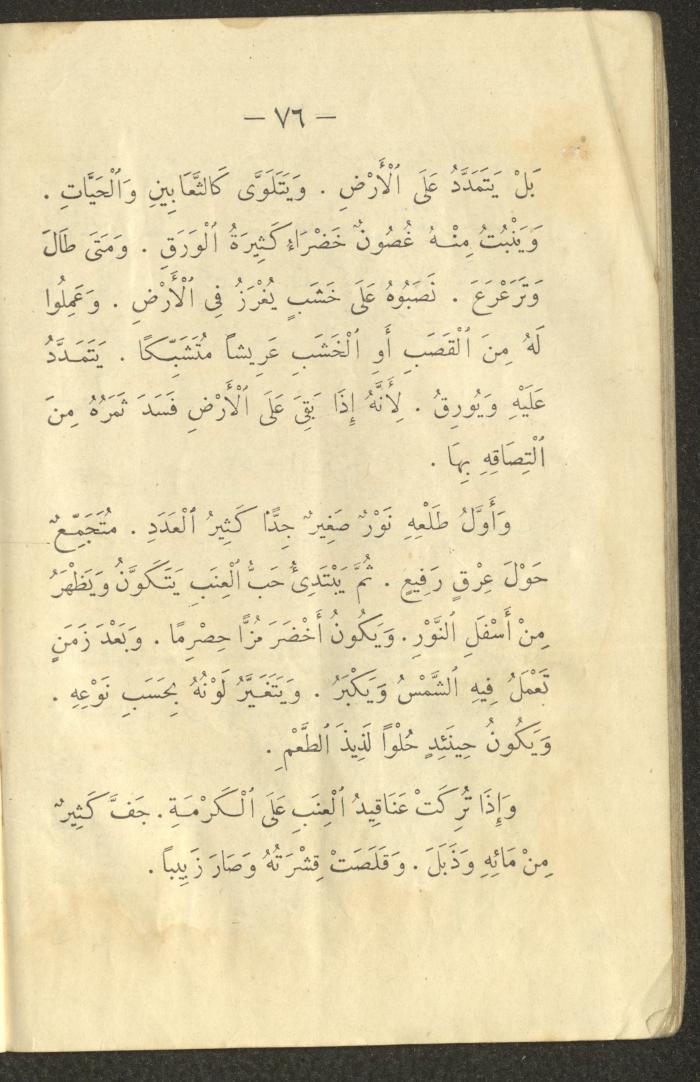 — ٧٦ —
بَلْ يَتَمَدَّدُ عَلَى ٱلْأَرْضِ . وَيَتَلَوَّى كَالثَّعَابِينِ وَٱلْحَيَّاتِ .
وَيَنْبُتُ مِنْهُ غُصُونٌ خَضْرَاءُ كَثِيرَةُ ٱلْوَرَقِ . وَمَتَى طَالَ
وَتَرَعْرَعَ . نَصَبُوهُ عَلَى خَشَبٍ يُغْرَزُ فِي ٱلْأَرْضِ . وَعَمِلُوا
لَهُ مِنَ ٱلْقَصَبِ أَوِ ٱلْخَشَبِ عَرِيشاً مُتَشَبِّكًا . يَتَمَدَّدُ
عَلَيْهِ وَيُورِقُ . لِأَنَّهُ إِذَا بَقِيَ عَلَى ٱلْأَرْضِ فَسَدَ ثَمَرُهُ مِنَ
ٱلْتِصَاقِهِ بِهَا .
وَأَوَّلُ طَلْعِهِ نَوْرٌ صَغِيرٌ جِدًّا كَثِيرُ ٱلْعَدَدِ . مُتَجَمِّعٌ
حَوْلَ عِرْقٍ رَفِيعٍ . ثُمَّ يَبْتَدِئُ حَبُّ ٱلْعِنَبِ يَتَكَوَّنُ وَيَظْهَرُ
مِنْ أَسْفَلِ ٱلنَّوْرِ . وَيَكُونُ أَخْضَرَ مُزًّا حِصْرِمًا . وَبَعْدَ زَمَنٍ
تَعْمَلُ فِيهِ ٱلشَّمْسُ وَيَكْبَرُ . وَيَتَغَيَّرُ لَوْنُهُ بِحَسَبِ نَوْعِهِ .
وَيَكُونُ حِينَئِدٍ حُلْوًا لَذِيذَ ٱلطَّعْمِ .
وَإِذَا تُرِكَتْ عَنَاقِيدُ ٱلْعِنَبِ عَلَى ٱلْكَرْمَةِ . جَفَّ كَثِيرٌ
مِنْ مَائِهِ وَذَبَلَ . وَقَلَصَتْ قِشْرَتُهُ وَصَارَ زَبِيباً .